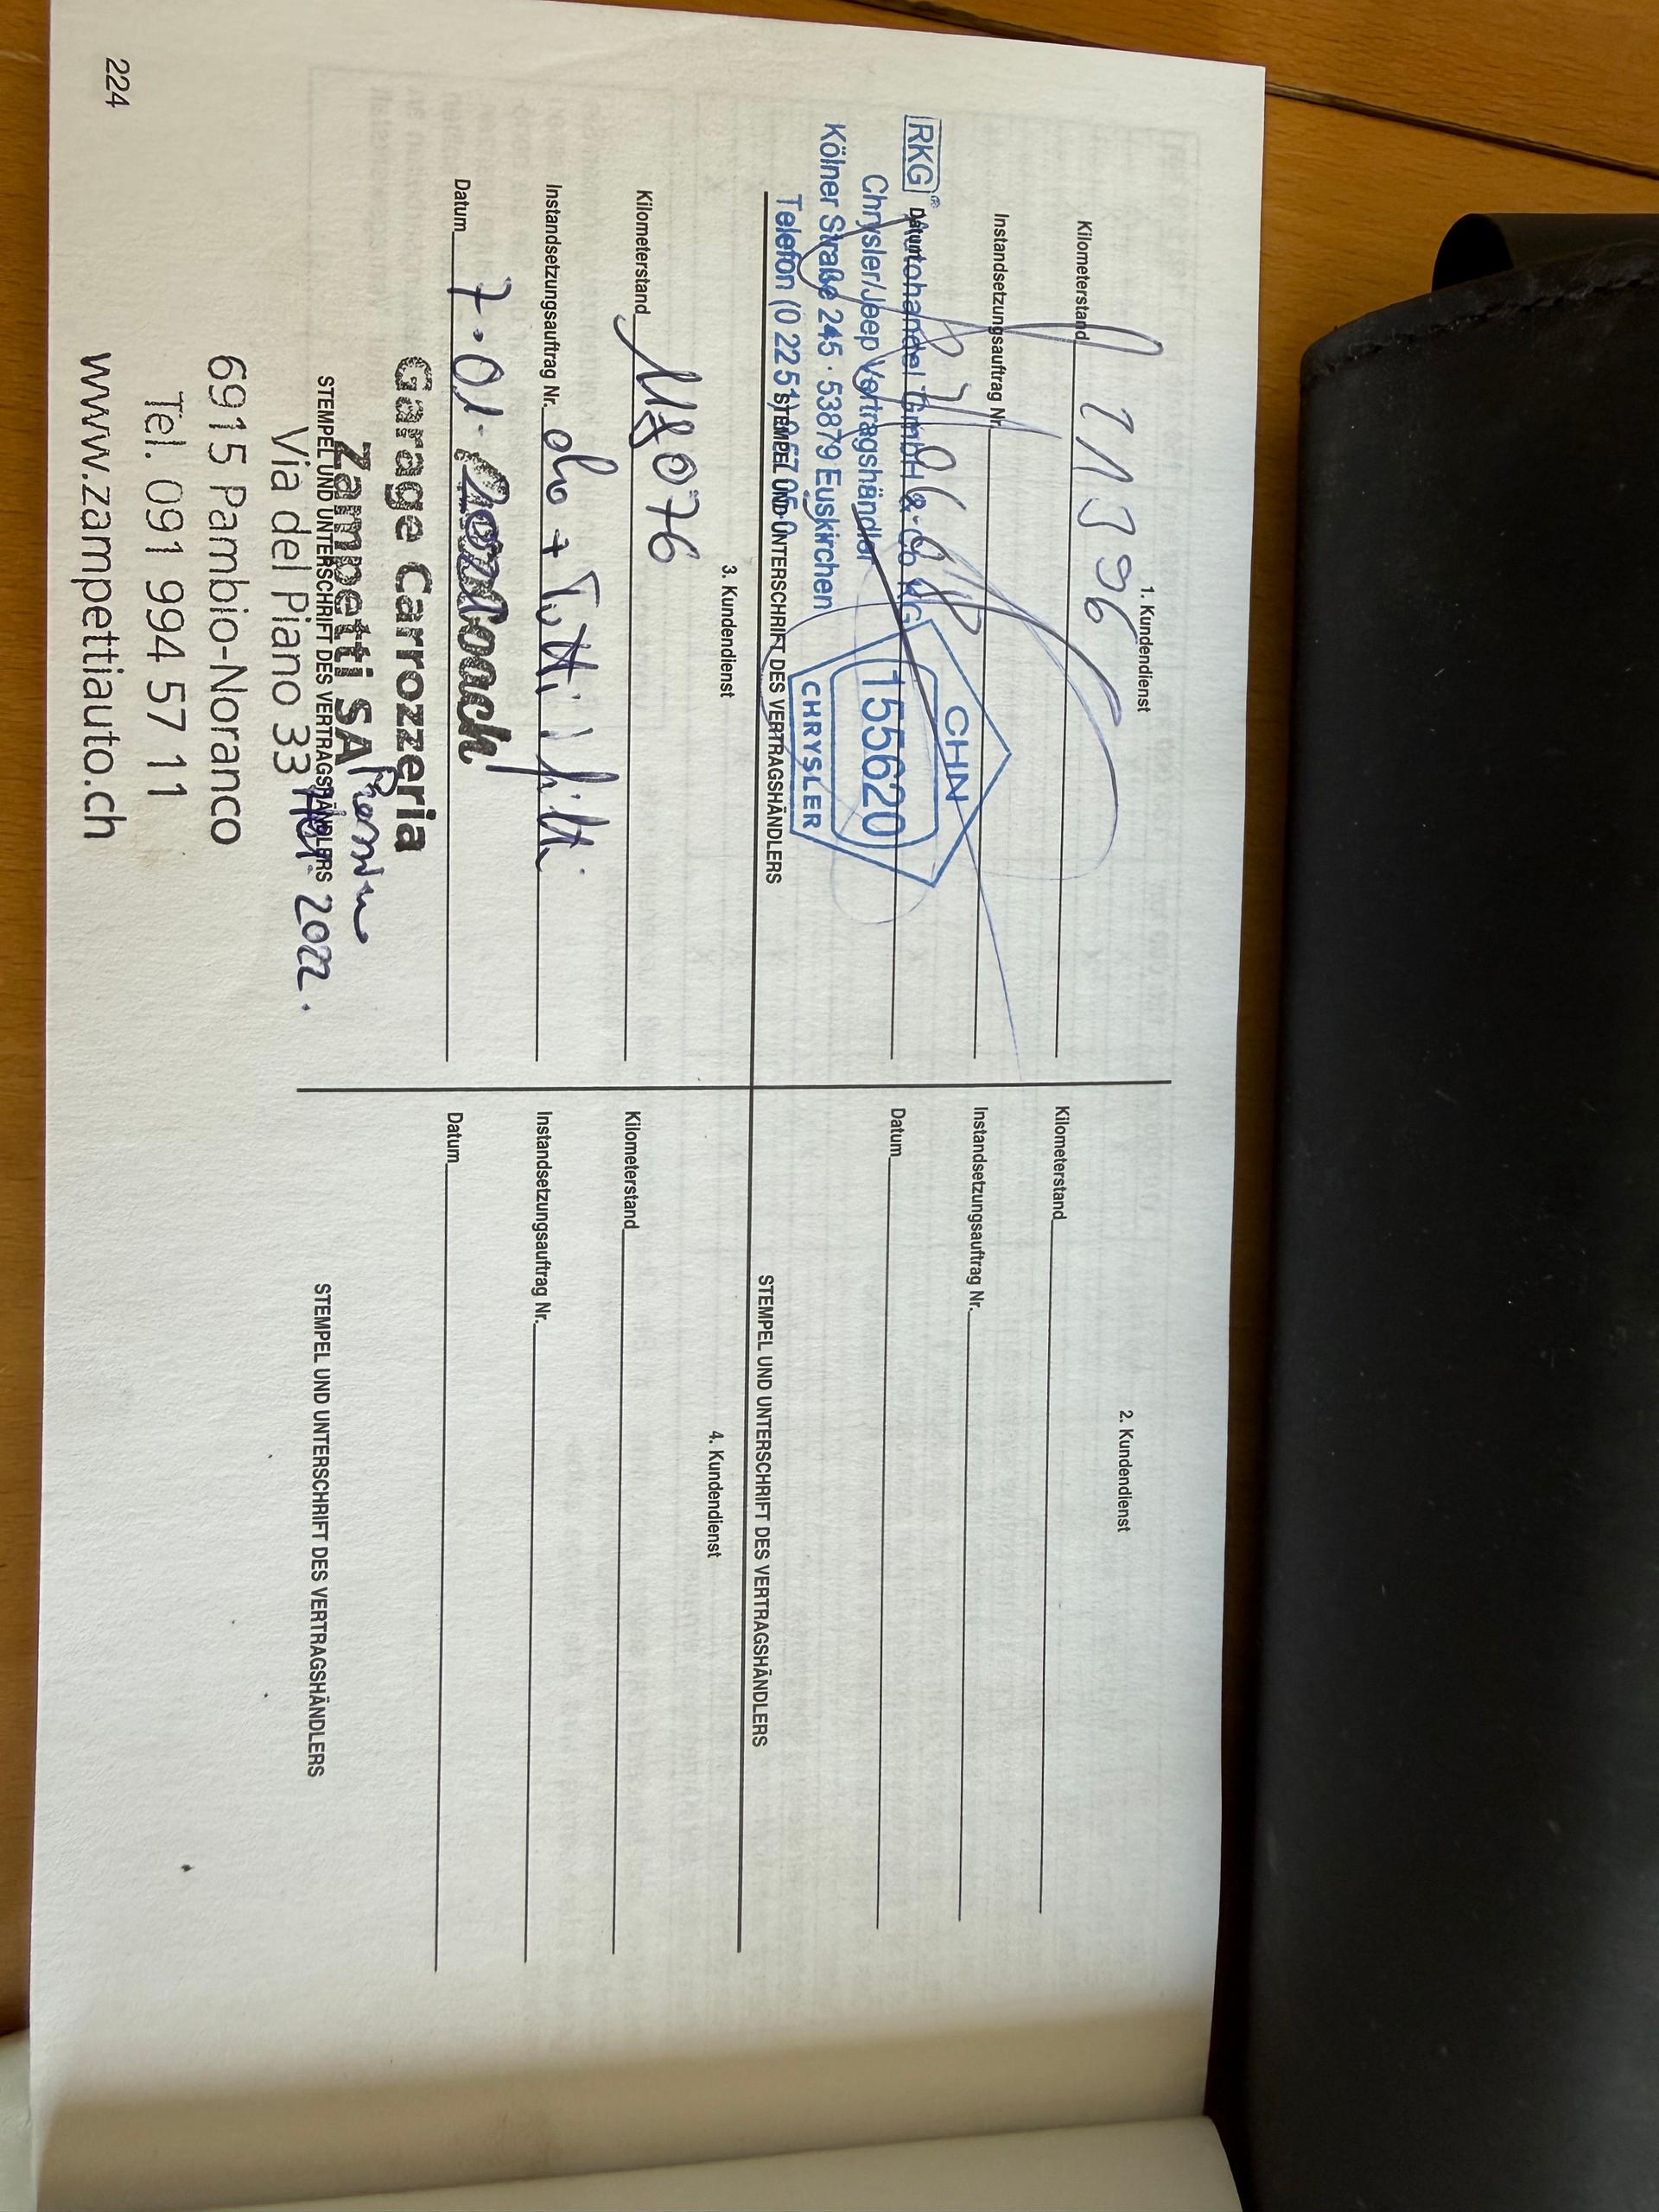 1. Kundendienst
Kilometerstand 21396
Instandsetzungsauftrag Nr.
Datum
RKG® Autohandel GmbH & Co KG
Chrysler/Jeep Vertragshändler
Kölner Straße 245 · 53879 Euskirchen
Telefon (0 22 51)
CHN
155620
CHRYSLER
STEMPEL UND UNTERSCHRIFT DES VERTRAGSHÄNDLERS
2. Kundendienst
Kilometerstand
Instandsetzungsauftrag Nr.
Datum
STEMPEL UND UNTERSCHRIFT DES VERTRAGSHÄNDLERS
3. Kundendienst
Kilometerstand
Instandsetzungsauftrag Nr. olio + Tutti i filtri
Datum 7.01.
Garage Carrozzeria
Zampetti SA
STEMPEL UND UNTERSCHRIFT DES VERTRAGSHÄNDLERS
Via del Piano 33
2022.
6915 Pambio-Noranco
Tel. 091 994 57 11
www.zampettiauto.ch
4. Kundendienst
Kilometerstand
Instandsetzungsauftrag Nr.
Datum
STEMPEL UND UNTERSCHRIFT DES VERTRAGSHÄNDLERS
224